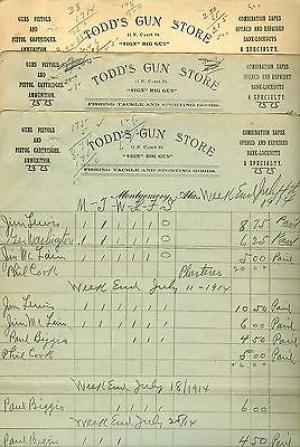 GUNS PISTOLS
AND
PISTOL CARTRIDGES.
AMMUNITION.
TODD'S GUN STORE
11 N. Court St.
"SIGN" BIG GUN"
COMBINATION SAFES
OPENED AND REPAIRED
BANK-LOCKOUTS
A SPECIALTY.
GUNS PISTOLS
AND
PISTOL CARTRIDGES.
AMMUNITION.
TODD'S GUN STORE
11 N. Court St.
"SIGN" BIG GUN"
FISHING TACKLE AND SPORTING GOODS.
COMBINATION SAFES
OPENED AND REPAIRED
BANK-LOCKOUTS
A SPECIALTY.
GUNS PISTOLS
AND
PISTOL CARTRIDGES.
AMMUNITION.
TODD'S GUN STORE
11 N. Court St.
"SIGN" BIG GUN"
FISHING TACKLE AND SPORTING GOODS.
COMBINATION SAFES
OPENED AND REPAIRED
BANK-LOCKOUTS
A SPECIALTY.
Montgomery, Ala. Week End July
M - T - W - T - F - S
Jim Lewis 8 75 Paid
Geo Washington 6 25 Paid
Jim McLain 5 00 Paid
Phil Cook Plasterer 20 00
Week End July 11 - 1914
Jim Lewis 10 50 Paid
Jim McLain 6 00 Paid
Paul Biggio 4 50 Paid
Phil Cook 5 00 Paid
Week End July 18/1914
Paul Biggio 6 00
Week End July 25/14
Paul Biggio 4 50 Paid